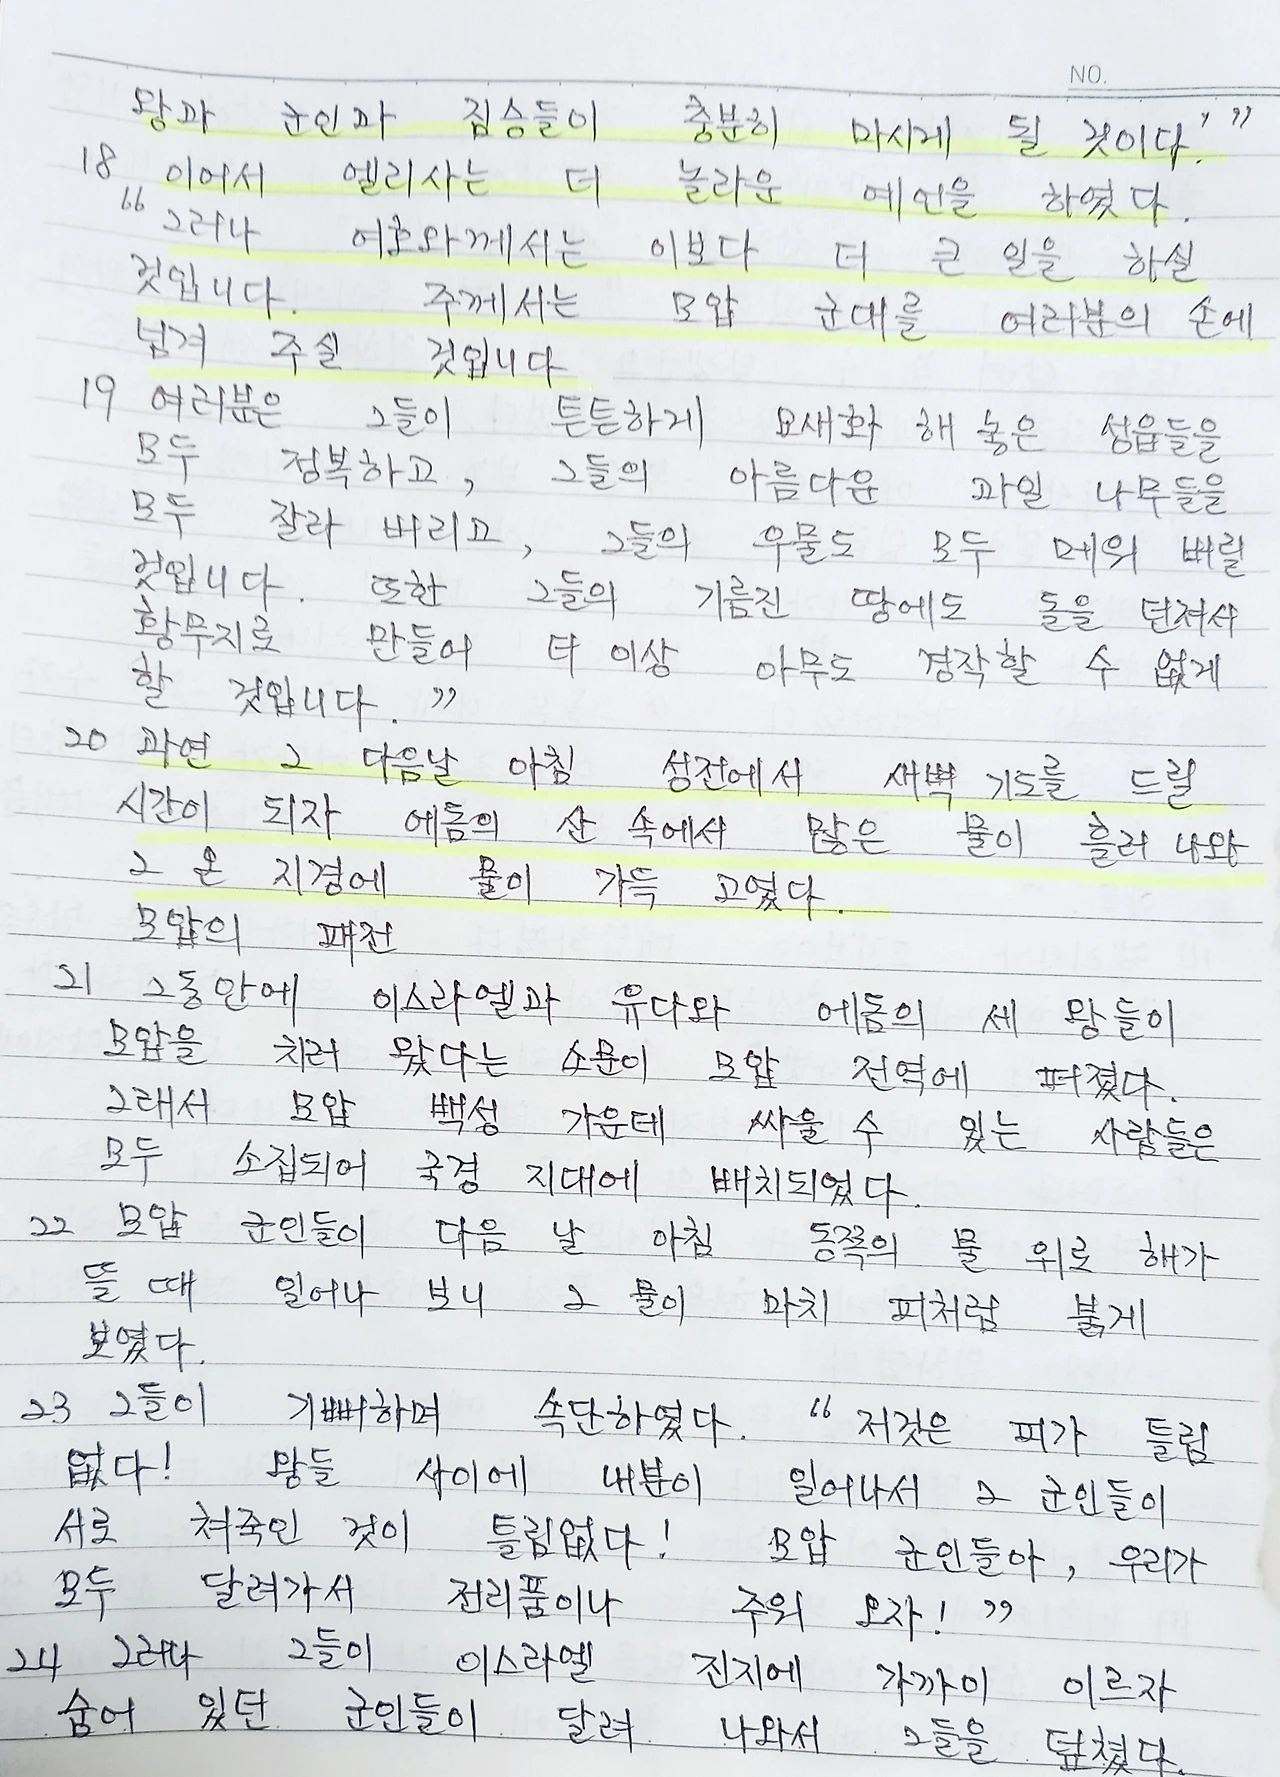 NO.
왕과 군인과 짐승들이 충분히 마시게 될 것이다.' "
18 이어서 엘리사는 더 놀라운 예언을 하였다.
" 그러나 여호와께서는 이보다 더 큰 일을 하실
것입니다. 주께서는 모압 군대를 여러분의 손에
넘겨 주실 것입니다
19 여러분은 그들이 튼튼하게 요새화 해 놓은 성읍들을
모두 정복하고, 그들의 아름다운 과일 나무들을
모두 잘라 버리고, 그들의 우물도 모두 메워 버릴
것입니다. 또한 그들의 기름진 땅에도 돌을 던져서
황무지로 만들어 더 이상 아무도 경작할 수 없게
할 것입니다. "
20 과연 그 다음날 아침 성전에서 새벽 기도를 드릴
시간이 되자 에돔의 산 속에서 많은 물이 흘러 나와
그 온 지경에 물이 가득 고였다.
모압의 패전
21 그동안에 이스라엘과 유다와 에돔의 세 왕들이
모압을 치러 왔다는 소문이 모압 전역에 퍼졌다.
그래서 모압 백성 가운데 싸울 수 있는 사람들은
모두 소집되어 국경 지대에 배치되었다.
22 모압 군인들이 다음 날 아침 동쪽의 물 위로 해가
뜰 때 일어나 보니 그 물이 마치 피처럼 붉게
보였다.
23 그들이 기뻐하며 속단하였다. " 저것은 피가 틀림
없다! 왕들 사이에 내분이 일어나서 그 군인들이
서로 쳐죽인 것이 틀림없다! 모압 군인들아, 우리가
모두 달려가서 전리품이나 주워 오자! "
24 그러나 그들이 이스라엘 진지에 가까이 이르자
숨어 있던 군인들이 달려 나와서 그들을 덮쳤다.